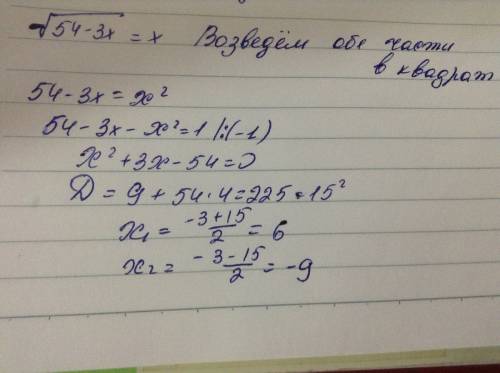 √54-3x = x Возведём обе части
в квадрат
54-3x = x²
54-3x-x²=1 |:(-1)
x²+3x-54=0
D = 9+54·4=225=15²
x₁ = -3+15/2 = 6
x₂ = -3-15/2 = -9